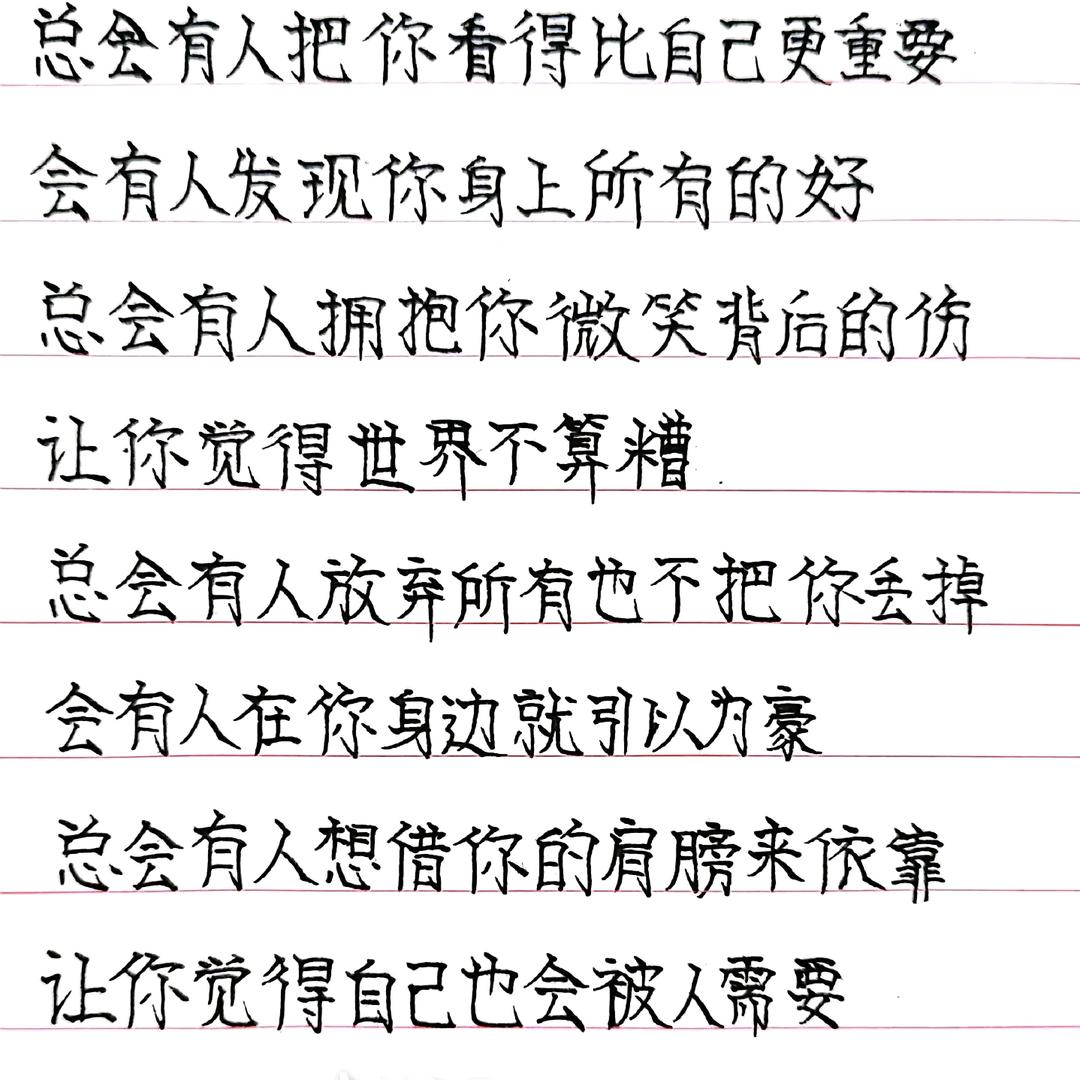 总会有人把你看得比自己更重要
会有人发现你身上所有的好
总会有人拥抱你微笑背后的伤
让你觉得世界不算糟
总会有人放弃所有也不把你丢掉
会有人在你身边就引以为豪
总会有人想借你的肩膀来依靠
让你觉得自己也会被人需要